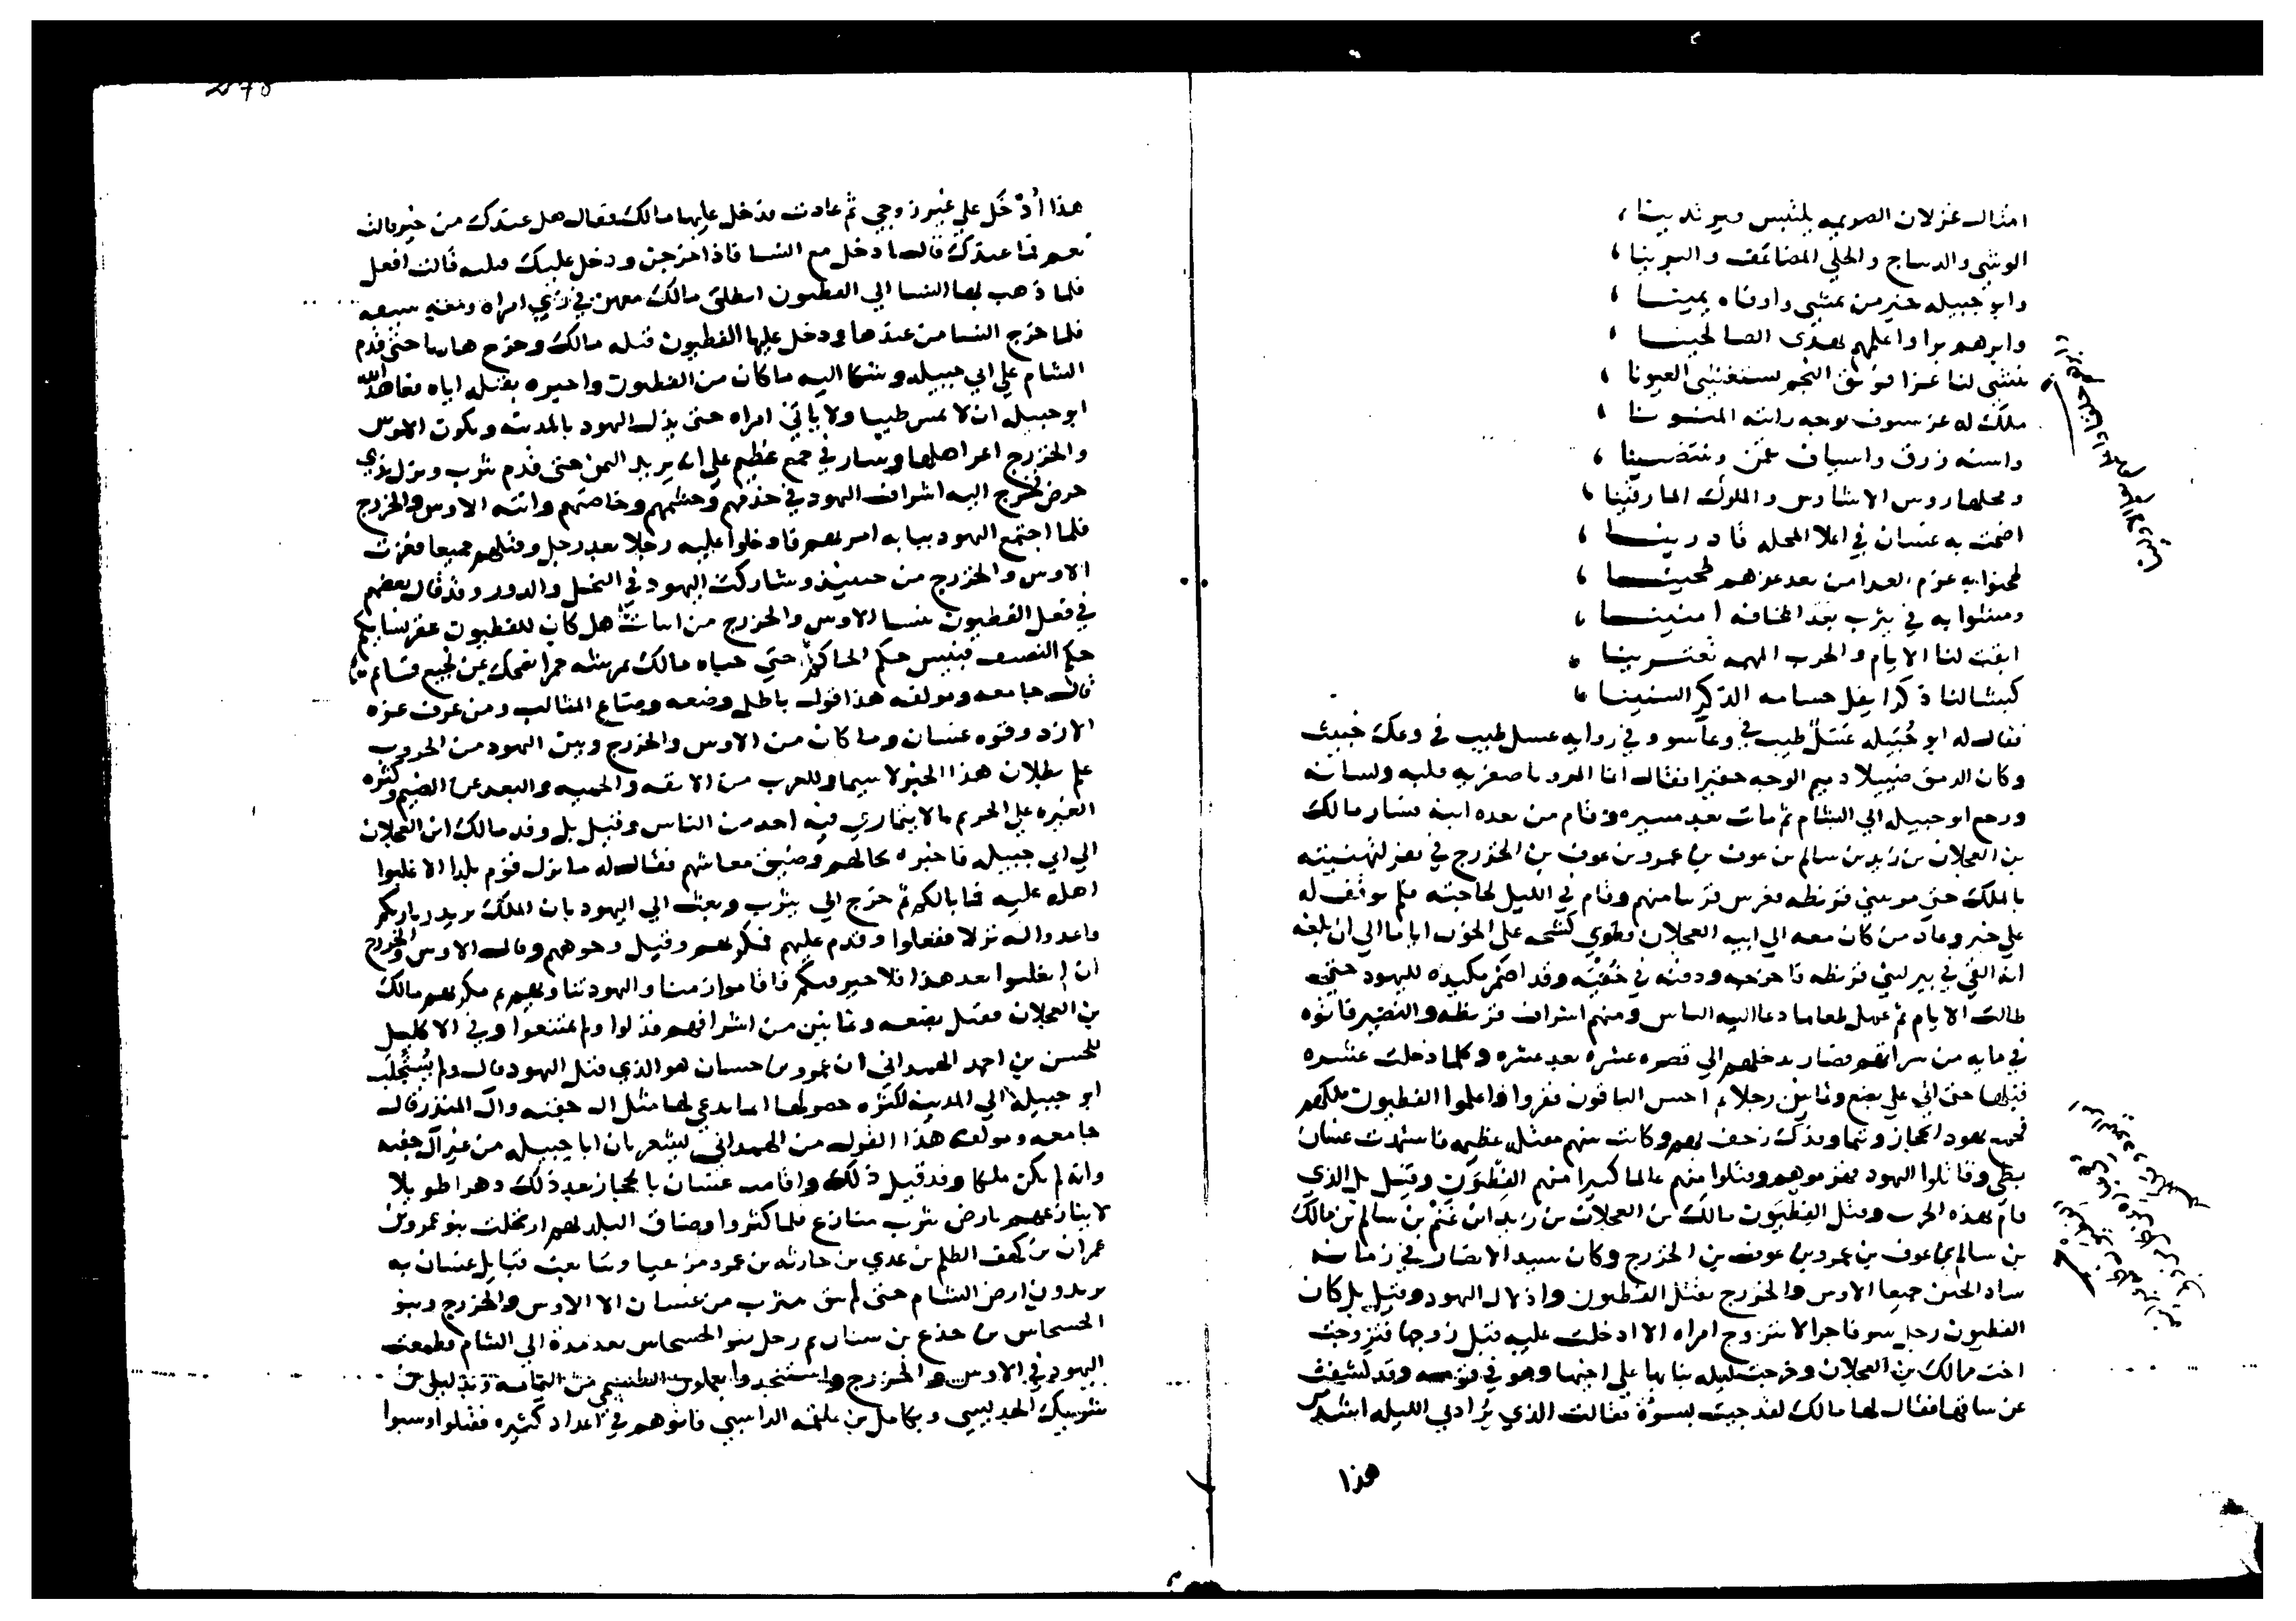 امثال غزلان الصريمه يلتبسن ويرتدينا
الوشي والديباج والحلي المضاعف والبرينا
وابو جبيله خير من يمشي واوفاه يمينا
وابرهم برا واعلمهم بهدي الصالحينا
لنا عزا فوق النجم العيونا
ملك له عز
واسنه زرق واسياف
روس الاشاوس والملوك المارقينا
اضحت به غسان في اعلا المحله قادرينا
طحنوا به عزم العدا من بعد عزهم طحينا
ومشوا به في يثرب بعد المخافه امنينا
ابقت لنا الايام والحرب المهمه تعترينا
كبشا لنا ذكرا يفل حسامه الذكر السنينا
فقال له ابو جُبَيله عَسَلٌ طيب في وعآ سو وفي روايه عسل طيب في وعآ خبيث
وكان الدمق ضييلا دميم الوجه حقيرا فقال انما المرو باصغريه قلبه ولسانه
ورجع ابو جبيله الي الشام ثم مات بعد مسيره وقام من بعده ابنه فسار مالك
بن العجلان بن زيد بن سالم بن عوف بن عمرو بن عوف بن الخزرج في نفر لتهنيته
بالملك حتي موسي قريظه فعرس قريبا منهم وقام في الليل لحاجته فلم يوقف له
علي خبر وعاد من كان معه الي ابيه العجلان فطوي كشحه علي الحزن اياما الي ان بلغه
انه القي في بير لبني قريظه فاخرجه ودفنه في خُفْيَه وقد اضمر مكيده لليهود حتي
طالت الايام ثم عمل طعاما دعا اليه الناس ومنهم اشراف قريظه والنضير فاتوه
في مايه من سراتهم فصار يدخلهم الي قصره عشره بعد عشره وكلما دخلت عشره
قتلها حتي اتي علي بضع وثمانين رجلا ثم احس الباقون ففروا واعلموا الفطيون ملكهم
فجمع يهود الحجاز وتيما وفدك زحف بهم وكانت منهم مقتله عظيمه فاستمدت غسان
وقاتلوا اليهود فهزموهم وقتلوا منهم عالما كبيرا منهم الفِطْيَون وقيل بل الذي
قام بهذه الحرب وقتل الفِطْيَون مالك بن العجلان بن زيد ابن غَنْم بن سالم بن مالك
بن سالم بن عوف بن عمرو بن عوف بن الخزرج وكان سيد الانصار في زمانه
ساد الحيين جميعا الاوس والخزرج بقتل الفطيون واذلال اليهود وقيل بل كان
الفطيون رجل سو فاجرا لا تتزوج امراه الا ادخلت عليه قبل زوجها فتزوجت
اخت مالك بن العجلان وخرجت ليله بنايها علي اخيها وهو في قومه وقد كشفت
عن ساقها فقال لها مالك لقد جيت بسوْة فقالت الذي يُراد بي الليله اشد من
هذا
هذا أُدْخَل علي غير زوجي ثم عادت فدخل عليها مالك فقال هل عندك من خير قالت
نعم فما عندك قال ادخل مع النسا فاذا خرجن ودخل عليك قتلته قالت افعل
فلما ذهب بها النسا الي الفطيون انطلق مالك معهن في زي امراه ومعه سيفه
فلما خرج النسا من عندها ودخل عليها الفطيون قتله مالك وخرج هاربا حتي قدم
الشام علي ابي جبيله وشكا اليه ما كان من الفطيون واخبره بقتله اياه فعاهد الله
ابو جبيله ان لا يمس طيبا ولا ياتي امراه حتي يذل اليهود بالمدينه ويكون الاوس
والخزرج اعز اهلها وسار في جمع عظيم علي انه يريد اليمن حتي قدم يثرب ونزل بذي
حرض فخرج اليه اشراف اليهود في خدمهم وحشمهم وخاصتهم واتته الاوس والخزرج
فلما اجتمع اليهود ببابه امر بهم فادخلوا عليه رجلا بعد رجل وقتلهم جميعا فعزت
الاوس والخزرج من حينيذ وشاركت اليهود في النخل والدور وقد قال بعضهم
في فعل الفطيون بنسا الاوس والخزرج من ابيات هل كان للفطيون عقر نسايكم
حكم النصيف فبيس حكم الحاكم حتي حباه مالك بمرشه حمرا تضحك عن نجيع قاتم
قال جامعه ومولفه هذا قول باطل وضعه وضاع المثالب ومن عرف عزه
الازد وقوه غسان وما كان من الاوس والخزرج وبين اليهود من الحروب
علم بطلان هذا الخبر لا سيما وللعرب من الانفه والحميه والبعد عن الضيم وكثره
الغيره علي الحريم ما لا يتماري فيه احد من الناس وقيل بل وفد مالك ابن العجلان
الي ابي جبيله فاخبره بحالهم وضيق معاشهم فقال له ما نزل قوم بلدا الا غلبوا
اهله عليه فما بالكم ثم خرج الي يثرب وبعث الي اليهود بان الملك يريد زيارتكم
فاعدوا له نزلا ففعلوا وقدم عليهم فمكر بهم وقتل وجوههم وقال الاوس والخزرج
ان لم تغلبوا بعد هذا فلا خير فيكم فاقاموا زمنا واليهود تناويهم ثم مكر بهم مالك
بن العجلان فقتل بضعه وثمانين من اشرافهم فذلوا ولم يمتنعوا وفي الاكليل
للحسن بن احمد الهمداني ان عمرو بن حسان هو الذي قتل اليهود قال ولم يُستجلب
ابو جبيله الي المدينه لكثره حصونها انما يدعي لها مثل ال جفنه وال المنذر قال
جامعه ومولفه هذا القول من الهمداني ليشعر بان ابا جبيله من غير ال جفنه
وانه لم يكن ملكا وقد قيل ذلك واقامت غسان بالحجاز بعد ذلك دهرا طويلا
لا ينازعهم بارض يثرب منازع فلما كثروا وضاق البلد بهم ارتحلت بنو عمرو بن
عمران بن كهف الظلم بن عدي بن حارثه بن عمرو مزيقيا وتتابعت قبايل غسان به
يريدون ارض الشام حتي لم يبق بيثرب من غسان الا الاوس والخزرج وبنو
الحسحاس بن جذع بن سنان ثم رحل بنو الحسحاس بعد مده الي الشام فطمعت
اليهود في الاوس والخزرج واستنجدوا من اليمامه
وبكامل بن علقمه الراسبي فاتوهم في اعداد كثيره فقتلوا وسبوا